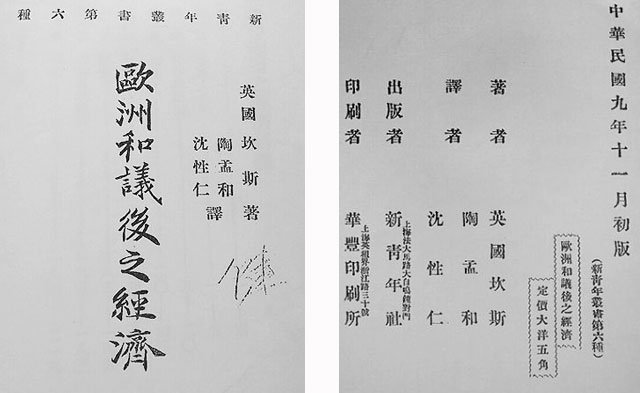 新青年叢書第六種
英國坎斯著
陶孟和
沈性仁譯
歐洲和議後之經濟
中華民國九年十一月初版
(新青年叢書第六種)
歐洲和議後之經濟
定價大洋五角
著者 英國坎斯
譯者 陶孟和
沈性仁
出版者 上海法大馬路大自鳴鐘對門
新青年社
印刷者 上海英租界浙江路三十號
華豐印刷所